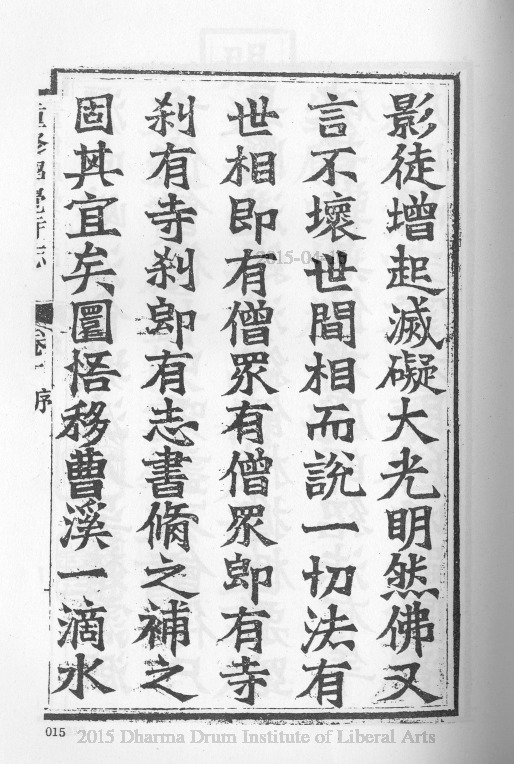 影徒增起滅礙大光明然佛又
言不壞世間相而說一切法有
世相即有僧眾有僧眾即有寺
刹有寺刹即有志書脩之補之
固其宜矣圜悟移曹溪一滴水
卷一 序
015
2015-04-
2015 Dharma Drum Institute of Liberal Arts